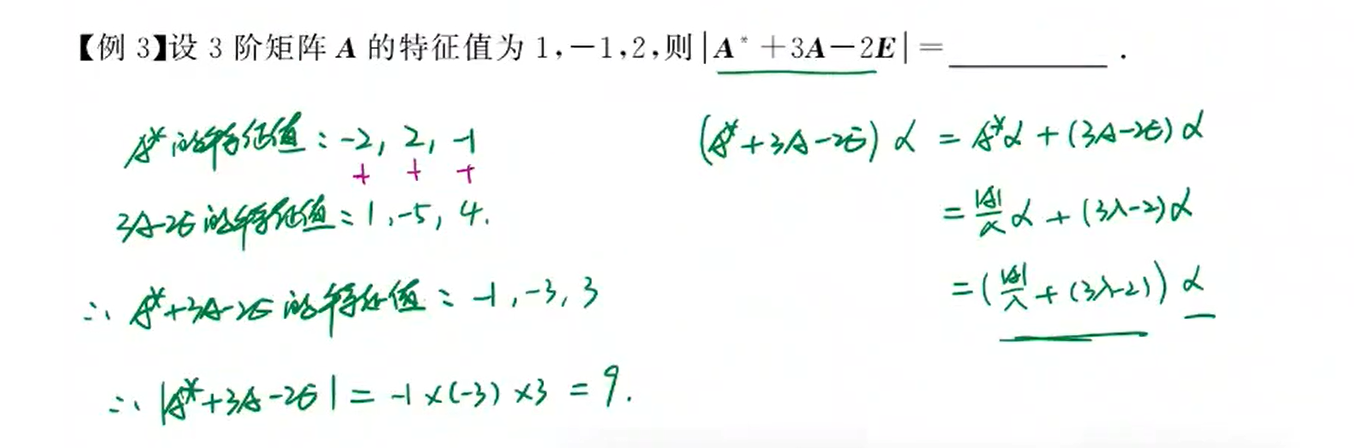 【例 3】设 3 阶矩阵 A 的特征值为 1,-1,2,则|A* +3A-2E|=__________ .
A*的特征值：-2, 2, -1
+ + +
3A-2E的特征值：1,-5, 4.
∴ A*+3A-2E的特征值：-1,-3,3
∴ |A*+3A-2E| = -1×(-3)×3 = 9.
(A*+3A-2E) α = A*α + (3A-2E)α
= |A|/λ α + (3λ-2)α
= (|A|/λ + (3λ-2)) α